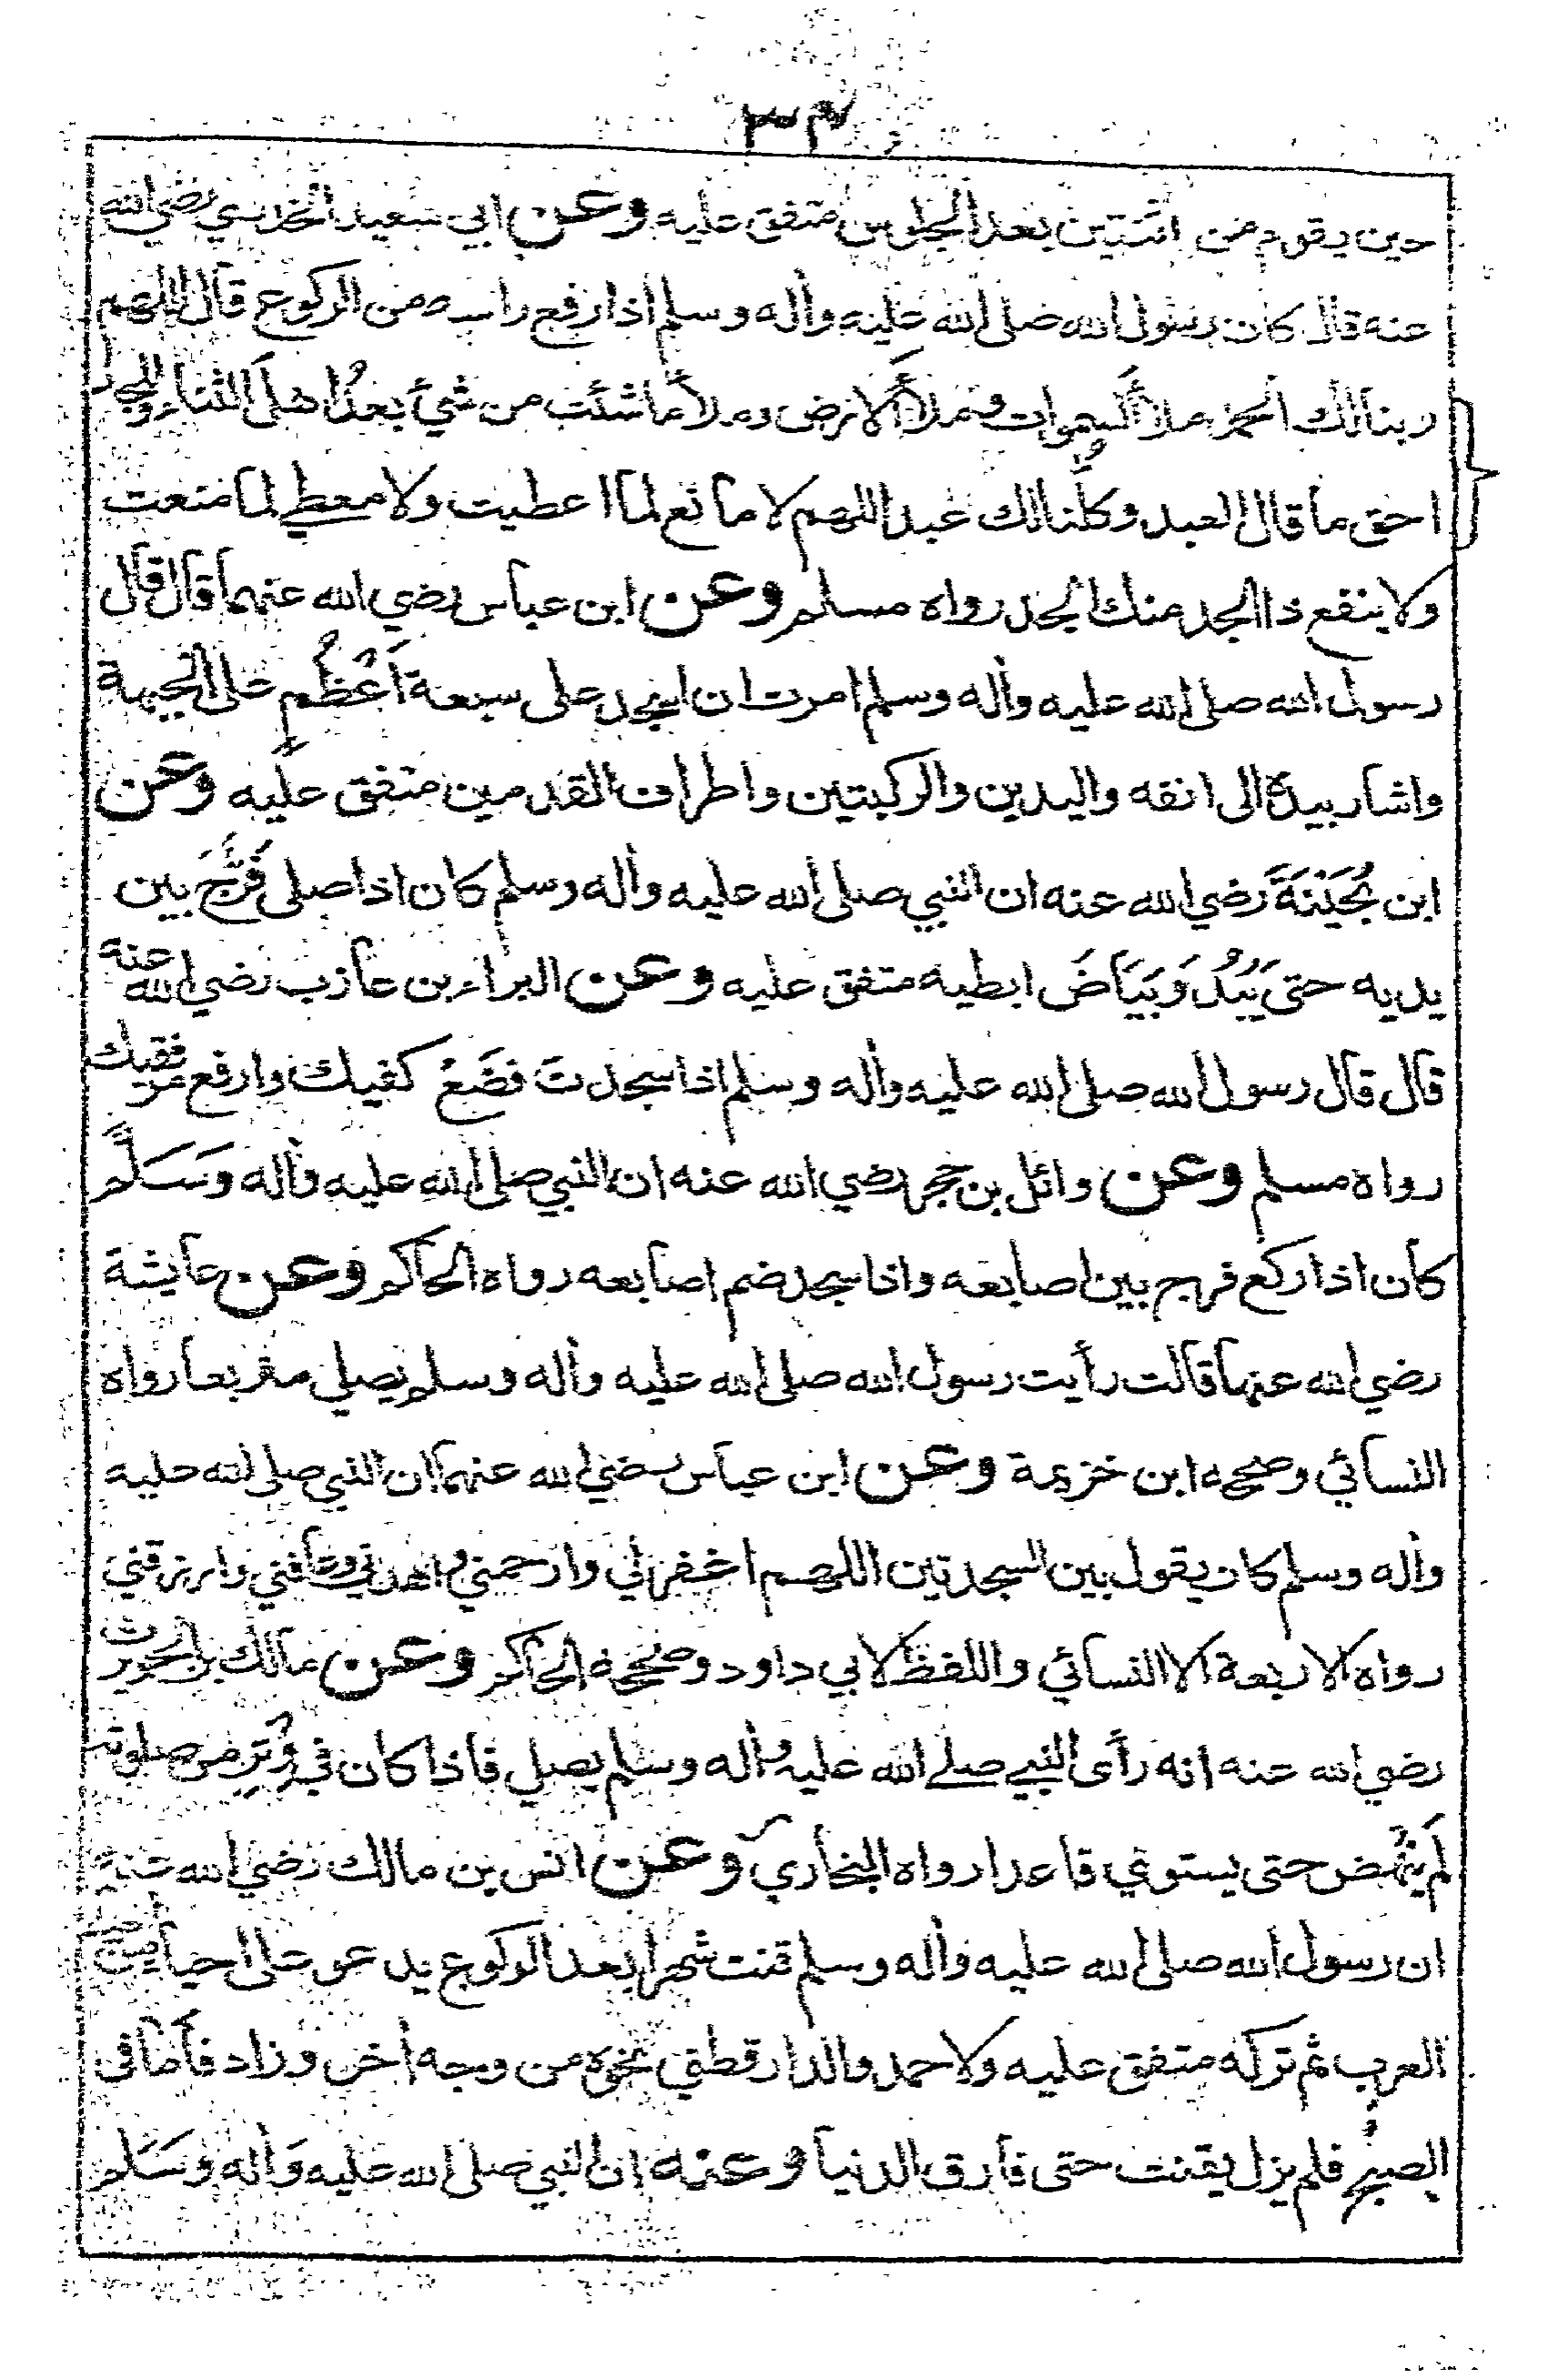 ٣٤
حين يقوم من اثنتين بعد الجلوس متفق عليه وعن ابي سعيد الخدري رضي الله
عنه قال كان رسول الله صلى الله عليه وأله وسلم اذا رفع راسه من الركوع قال اللهم
ربنا لك الحمد ملأ السموات وملأ الارض وملأ ما شئت من شيْ بعدُ اهلَ الثناء والمجد
احق ما قال العبد وكلُّنا لك عبد اللهم لا مانع لما اعطيت ولا معطي لما منعت
ولا ينفع ذا الجد منك الجد رواه مسلم وعن ابن عباس رضي الله عنهما قال قال
رسول الله صلى الله عليه وأله وسلم امرت ان اسجد على سبعة اَعْظُمٍ على الجبهة
واشار بيده الى انفه واليدين والركبتين واطراف القدمين متفق عليه وعن
ابن بُحَيْنَةَ رضي الله عنه ان النبي صلى الله عليه وأله وسلم كان اذا صلى فَرَّجَ بين
يديه حتى يَبْدُوَ بَيَاضَ ابطيه متفق عليه وعن البراء بن عازب رضي الله عنه
قال قال رسول الله صلى الله عليه وأله وسلم اذا سجدتَ فضَعْ كفيك وارفع مرفقيك
رواه مسلم وعن وائل بن حجر رضي الله عنه ان النبي صلى الله عليه وأله وَسَلَّم
كان اذا ركع فرج بين اصابعه واذا سجد ضم اصابعه رواه الحاكم وعن عايشة
رضي الله عنها قالت رأيت رسول الله صلى الله عليه وأله وسلم يصلي متربعا رواه
النسائي وصححه ابن خزيمة وعن ابن عباس رضي الله عنهما ان النبي صلى الله عليه
وأله وسلم كان يقول بين السجدتين اللهم اغفر لي وارحمني واهدني وعافني وارزقني
رواه الاربعة الا النسائي واللفظ لابي داود وصححه الحاكم وعن مالك بن الحويرث
رضي الله عنه انه رأى النبي صلى الله عليه وأله وسلم يصلي فاذا كان في وِتْرٍ من صلوته
لم ينْهض حتى يستوي قاعدا رواه البخاري وعن انس بن مالك رضي الله عنه
ان رسول الله صلى الله عليه وأله وسلم قنت شهرا بعد الركوع يدعو على احياء من
العرب ثم تركه متفق عليه ولاحمد والدارقطني نحوه من وجه أخر وزاد فأما في
الصبح فلم يزل يقنت حتى فارق الدنيا وعنه ان النبي صلى الله عليه وأله وَسَلم